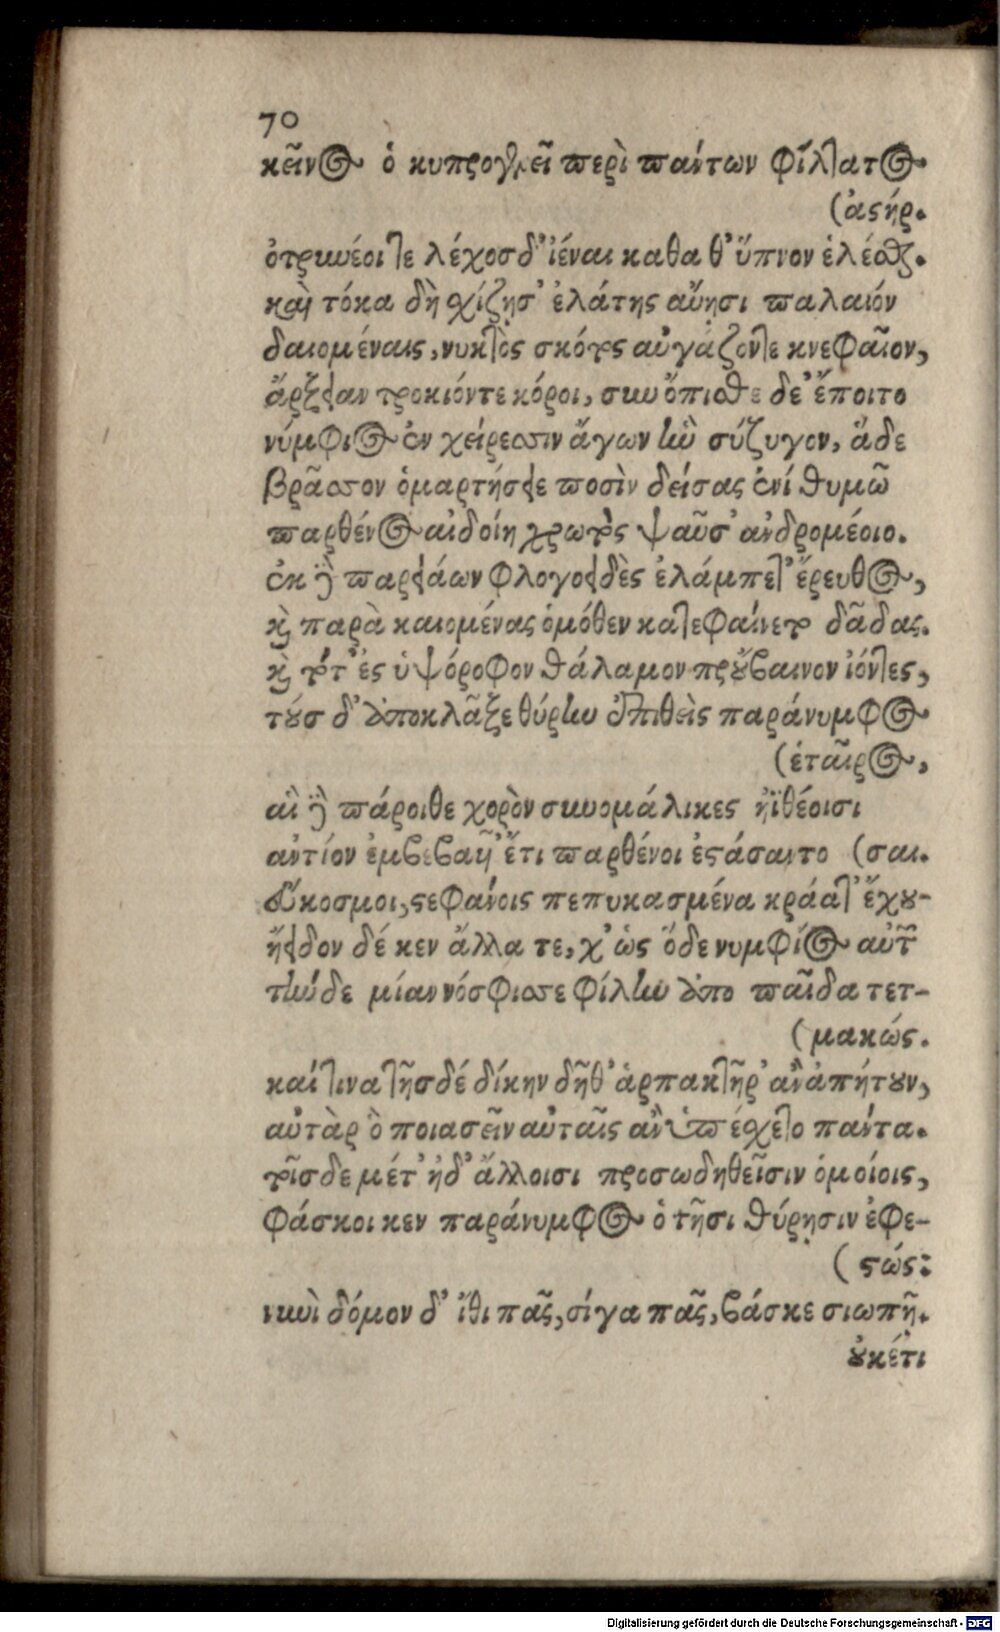 70
κεῖνος ὁ κυπρογενεῖ περὶ πάντων φίλτατος
(ἀςήρ.
ὀτρυνέοιτε λέχοσδ' ἰέναι καθα θ' ὕπνον ἑλέσθαι.
καὶ τόκα δὴ σχίζησ' ἐλάτης αὔησι παλαιόν
δαιομέναις, νυκτὸς σκότος αὐγάζοντε κνεφαῖον,
ἄρξαν τροκιόντε κόροι, σὺν ὄπισθε δε' ἔποιτο
νύμφιος ἐν χείρεσσιν ἄγων ἣν σύζυγον, ἅδε
βρᾶσσον ὁμαρτήσε ποσὶν δείσας ἐνί θυμῶ
παρθένος αἰδοίη χρωτὸς ψαῦσ' ἀνδρομέοιο.
ἐκ δὲ παράων φλογοδὲς ἐλάμπετ' ἔρευθος,
καὶ παρὰ καιομένας ὁμόθεν κατεφαίνετο δᾶδας.
καὶ τότ' ἐς ὑψόροφον θάλαμον προύβαινον ἰόντες,
τούσ δ' ἀποκλᾶξε θύρην ἐπιθεὶς παράνυμφος
(ἑταῖρος,
αἳ δὲ πάροιθε χορὸν συνομάλικες ἠϊθέοισι
ἀντίον ἐμβεβαῆ' ἔτι παρθένοι ἐςάσαντο (σαι.
εὔκοσμοι, ςεφάνοις πεπυκασμένα κράατ' ἔχου-
ἤδον δέ κεν ἄλλα τε, χ' ὡς ὅδε νυμφίος αὐτῶν
τήνδε μίαν νόσφισσε φίλην ἀπο παῖδα τετ-
(μακώς.
καί τινα τῆσδέ δίκην δῆθ' ἁρπακτῆρ' ἀνἀπήτουν,
αὐτὰρ ὃ ποιασεῖν αὐταῖς ἂν ὑπέχετο πάντα.
τοῖσδε μέτ' ἠδ' ἄλλοισι προσωδηθεῖσιν ὁμοίοις,
φάσκοι κεν παράνυμφος ὁ τῆσι θύρησιν ἐφε-
(ςώς:
νυνὶ δόμον δ' ἴθι πᾶς, σίγα πᾶς, βάσκε σιωπῆ.
οὐκέτι
Digitalisierung gefördert durch die Deutsche Forschungsgemeinschaft - DFG